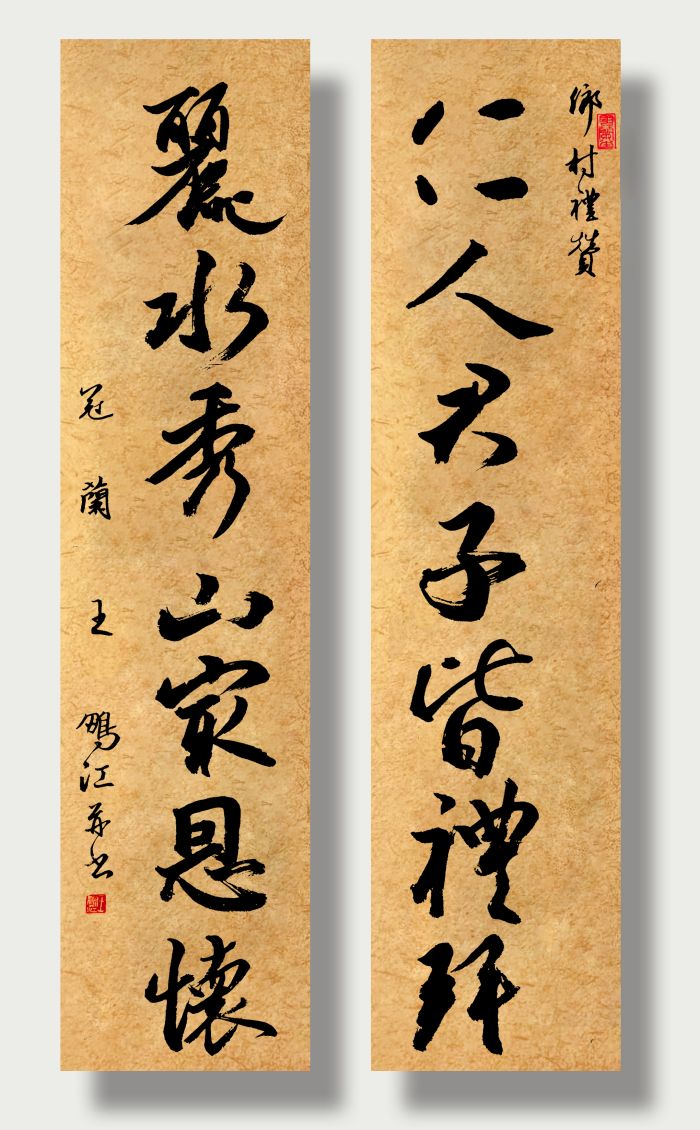 鄉村禮贊
仁人君子皆禮拜
麗水秀山恩懷
冠蘭 王鵬江并書